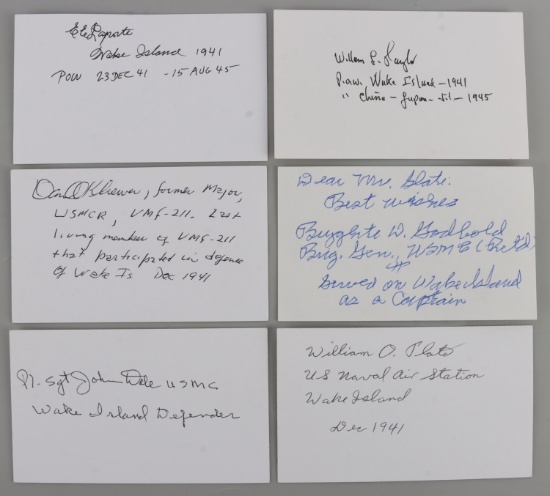 E E Laporte
Wake Island 1941
POW 23 DEC 41 - 15 AUG 45
William L. Taylor
P.O.W. Wake Island - 1941
" China - Japan - til - 1945
Dear Mr. Slate:
Best Wishes
Bryghte D. Godbold
Brig. Gen., USMC (Ret'd)
Served on Wake Island
as a Captain
, former Major,
USMCR, VMF-211. Last
living member of VMF-211
that participated in defense
of Wake Is Dec 1941
John Dale USMC
Wake Island Defender
William O. Plate
US Naval Air Station
Wake Island
Dec 1941